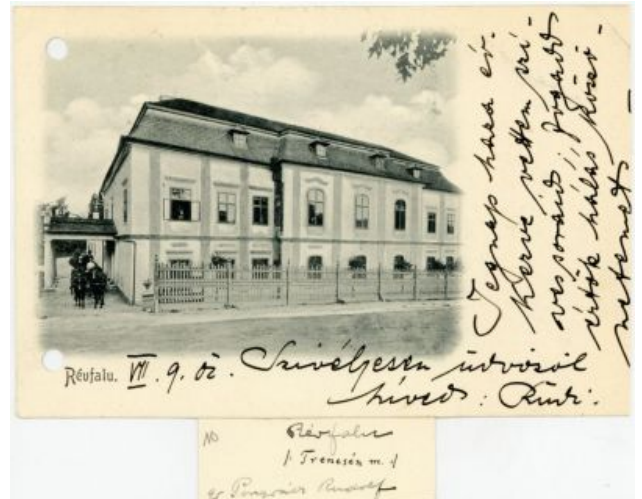 Tegnap haza ér-
kezve vettem szí-
ves soraid fogadd
értök hálás köszö-
netemet
Révfalu. VII. 9. 02. Szivélyesen üdvözöl
híved: Rudi.
Révfalu
Trencsén m.
Rudolf